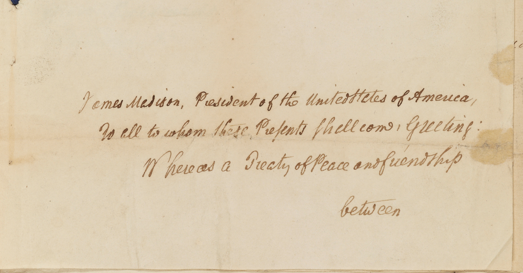 James Madison, President of the United States of America,
To all to whom these Presents shall come, Greeting:
Whereas a Treaty of Peace and friendship
between